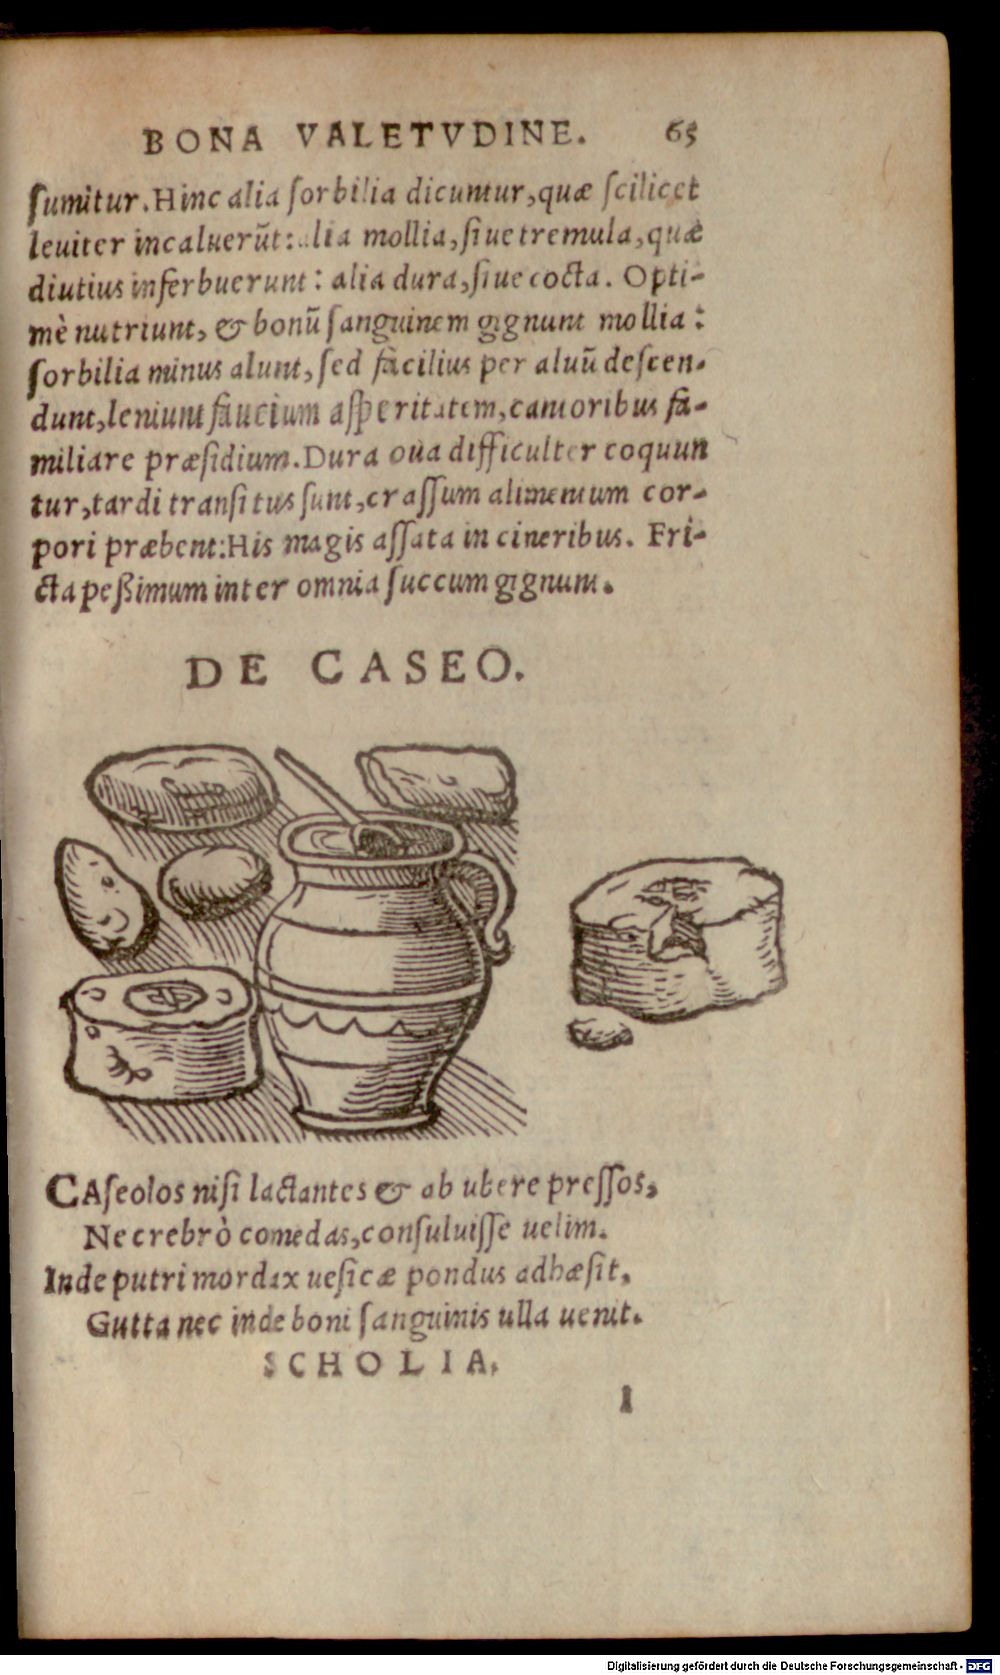 BONA VALETVDINE. 65
ſumitur. Hinc alia ſorbilia dicuntur, quæ ſcilicet
leuiter incaluerũt: alia mollia, ſiue tremula, quæ
diutius inferbuerunt: alia dura, ſiue cocta. Opti-
mè nutriunt, & bonũ ſanguinem gignunt mollia:
ſorbilia minus alunt, ſed facilius per aluũ deſcen-
dunt, leniunt faucium aſperitatem, cantoribus fa-
miliare præſidium. Dura oua difficulter coquun
tur, tardi tranſitus ſunt, craſſum alimentum cor-
pori præbent: His magis aſſata in cineribus. Fri-
cta peßimum inter omnia ſuccum gignunt.
DE CASEO.
CAſeolos niſi lactantes & ab ubere preſſos,
Ne crebrò comedas, conſuluiſſe uelim.
Inde putri mordax ueſicæ pondus adhæſit,
Gutta nec inde boni ſanguinis ulla uenit.
SCHOLIA.
I
Digitalisierung gefördert durch die Deutsche Forschungsgemeinschaft - DFG